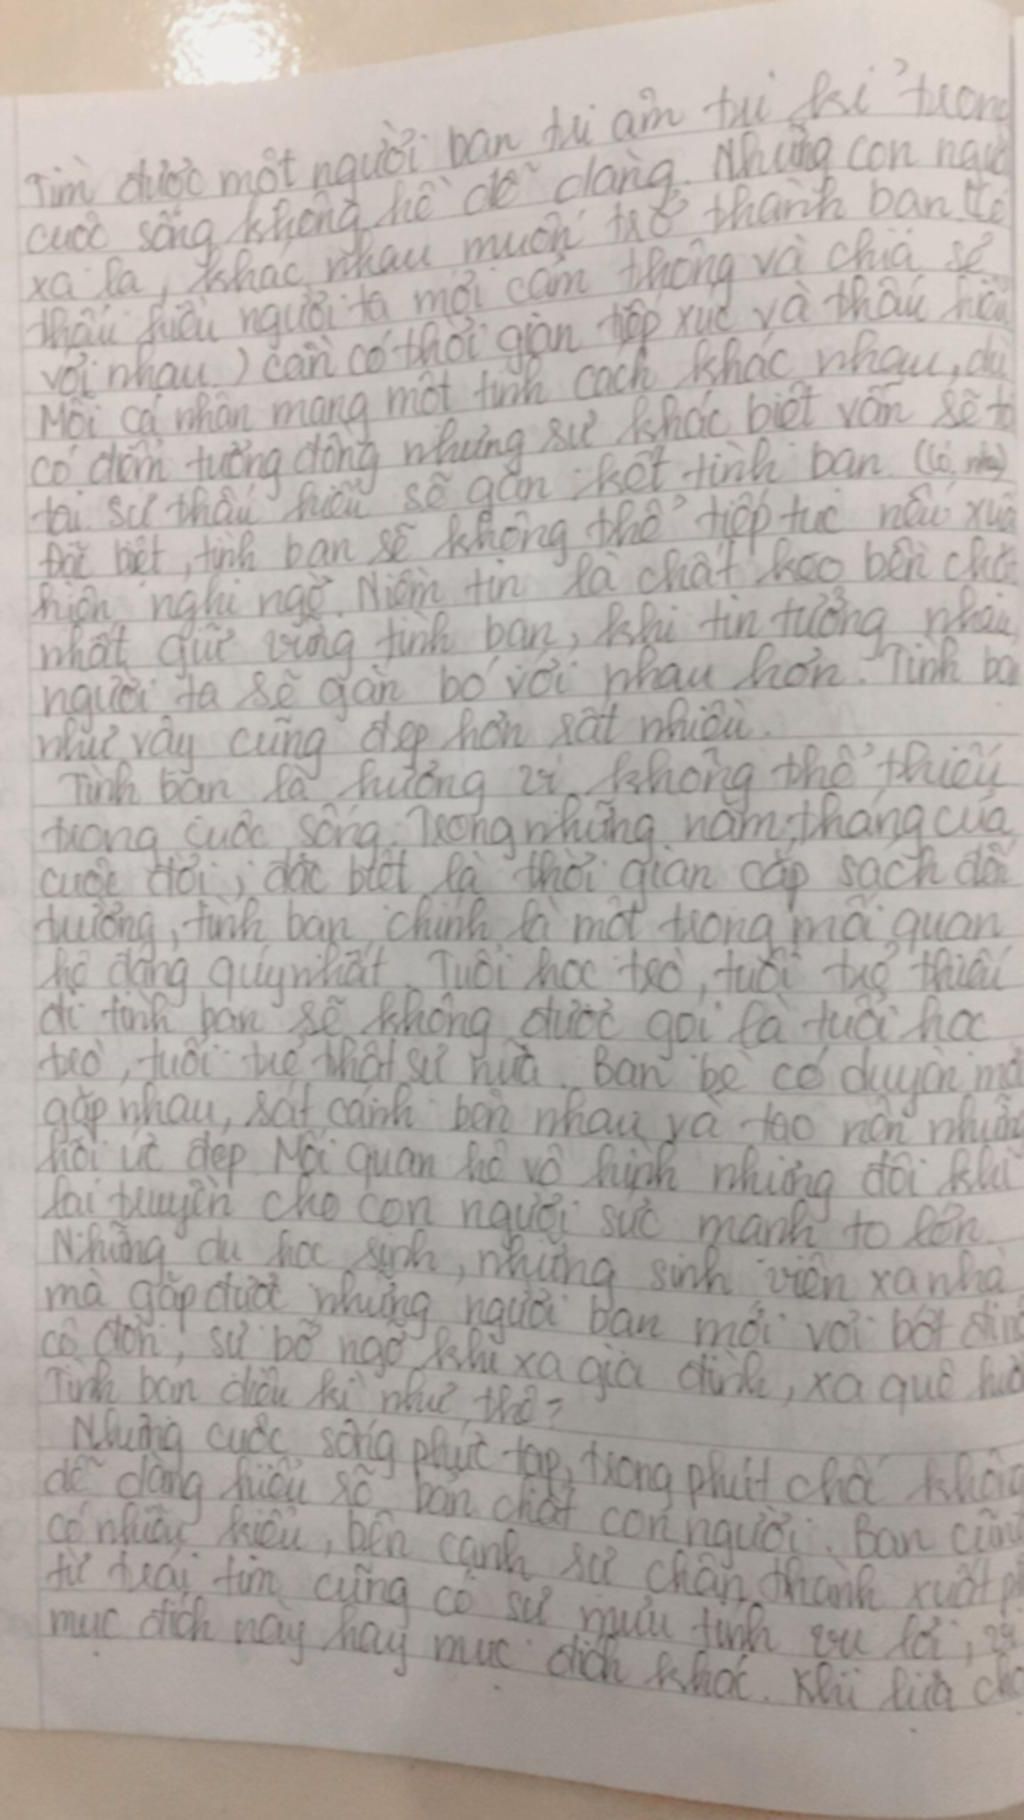 Tìm được một người bạn tri âm tri kỉ trong
cuộc sống không hề dễ dàng. Những con người
xa lạ, khác nhau muốn trở thành bạn (tế
thấu hiểu người ta mới cảm thông và chia sẻ
với nhau) cần có thời gian tiếp xúc và thấu hiểu
Mỗi cá nhân mang một tính cách khác nhau, dù
có điểm tương đồng nhưng sự khác biệt vẫn sẽ tồ
tại. Sự thấu hiểu sẽ gắn kết tình bạn
Đặc biệt, tình bạn sẽ không thể tiếp tục nếu xuấ
hiện nghi ngờ. Niềm tin là chất keo bền chặ
nhất giữ vững tình bạn, khi tin tưởng nhau
người ta sẽ gắn bó với nhau hơn. Tình bạ
như vậy cũng đẹp hơn rất nhiều.
Tình bạn là hương vị không thể thiếu
trong cuộc sống. Trong những năm tháng của
cuộc đời, đặc biệt là thời gian cắp sách đến
trường, tình bạn chính là một trong mối quan
hệ đáng quý nhất. Tuổi học trò, tuổi trẻ thiếu
đi tình bạn sẽ không được gọi là tuổi học
trò, tuổi trẻ thật sự nữa. Bạn bè có duyên mà
gặp nhau, sát cánh bên nhau và tạo nên những
hồi ức đẹp Mối quan hệ vô hình nhưng đôi khi
lại truyền cho con người sức mạnh to lớn.
Những du học sinh, những sinh viên xa nhà
mà gặp được những người bạn mới vơi bớt đi
cô đơn, sự bỡ ngỡ khi xa gia đình, xa quê hươ
Tình bạn diệu kì như thế?
Nhưng cuộc sống phức tạp, trong phút chốc không
dễ dàng hiểu rõ bản chất con người. Bạn cũng
có nhiều kiểu, bên cạnh sự chân thành xuất ph
từ trái tim cũng có sự mưu tính vụ lợi, vì
mục đích này hay mục đích khác. Khi lựa chọ